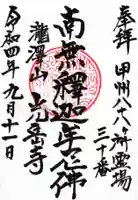 奉拜
甲州八八ヶ所霊場
三十番
南無釋迦牟尼佛
瀧澤山
光岳寺
令和四年九月十一日